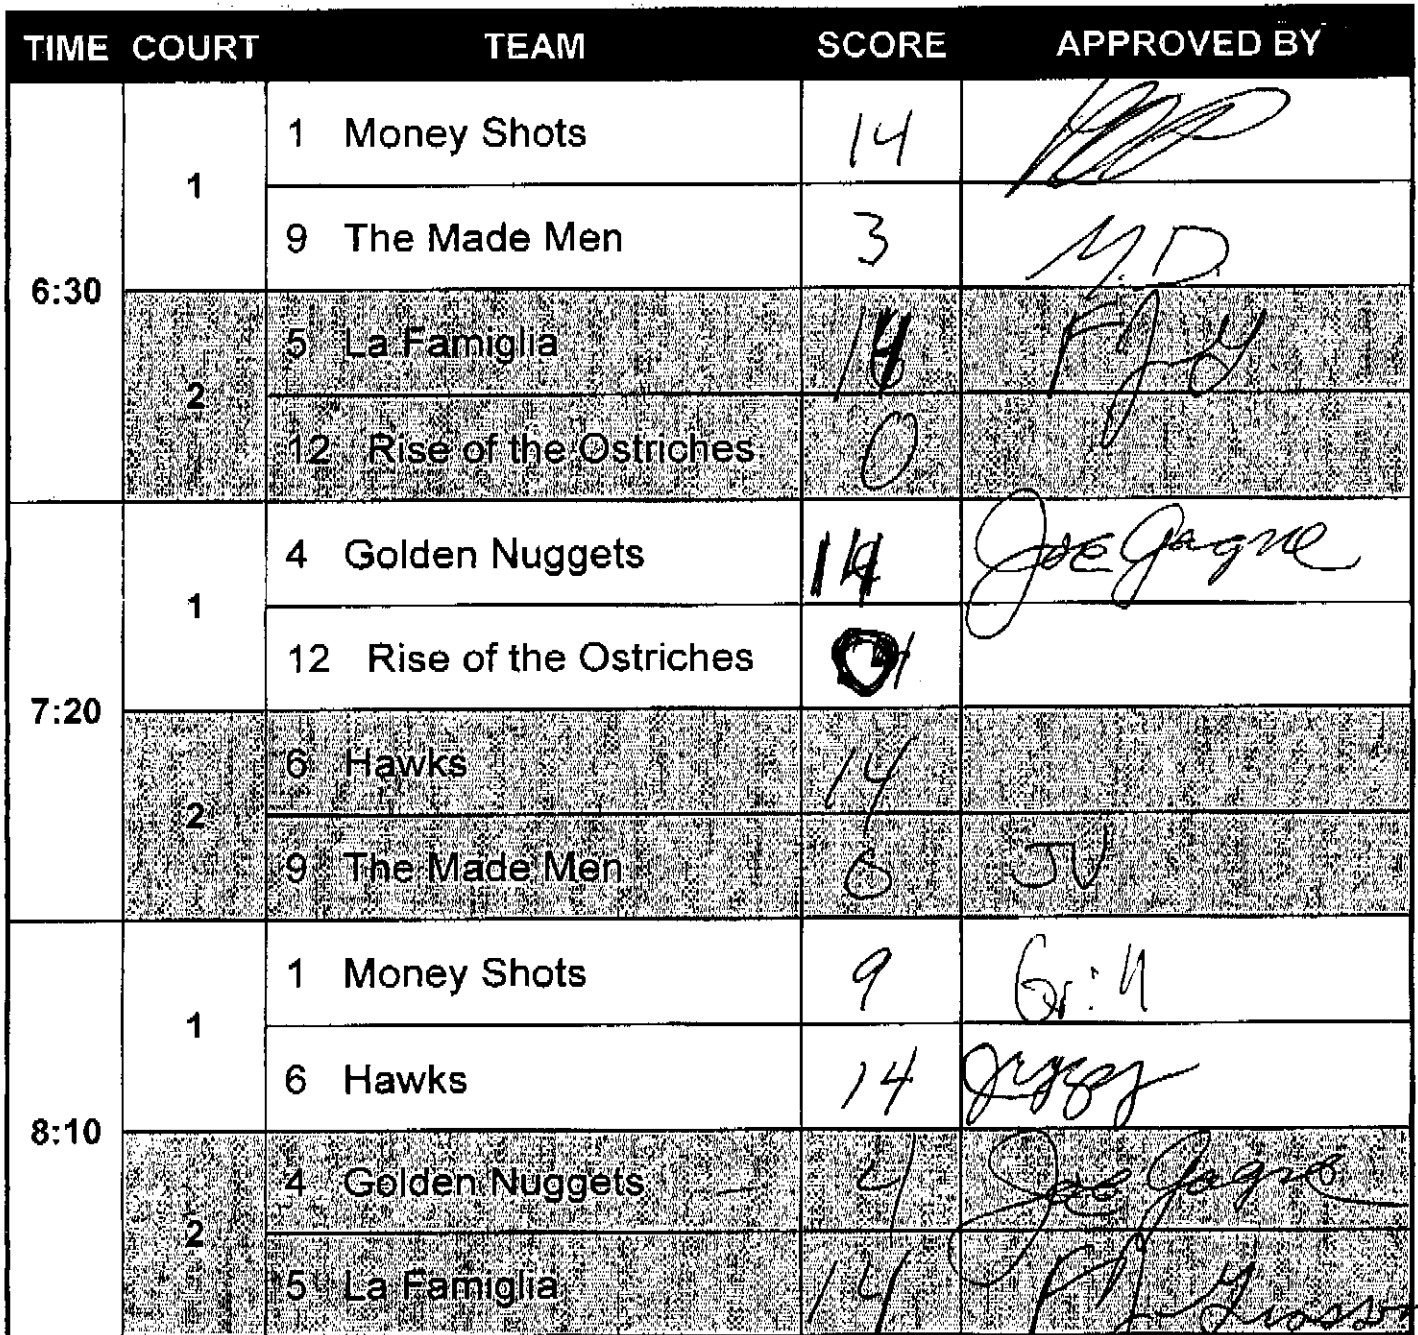 TIME COURT TEAM SCORE APPROVED BY
6:30
1
1 Money Shots 14
9 The Made Men 3 M.D.
2
5 La Famiglia 14
12 Rise of the Ostriches 0
7:20
1
4 Golden Nuggets 14 Joe Gagne
12 Rise of the Ostriches 0
2
6 Hawks 14
9 The Made Men 6 JV
8:10
1
1 Money Shots 9
6 Hawks 14
2
4 Golden Nuggets 4 Joe Gagne
5 La Famiglia 14